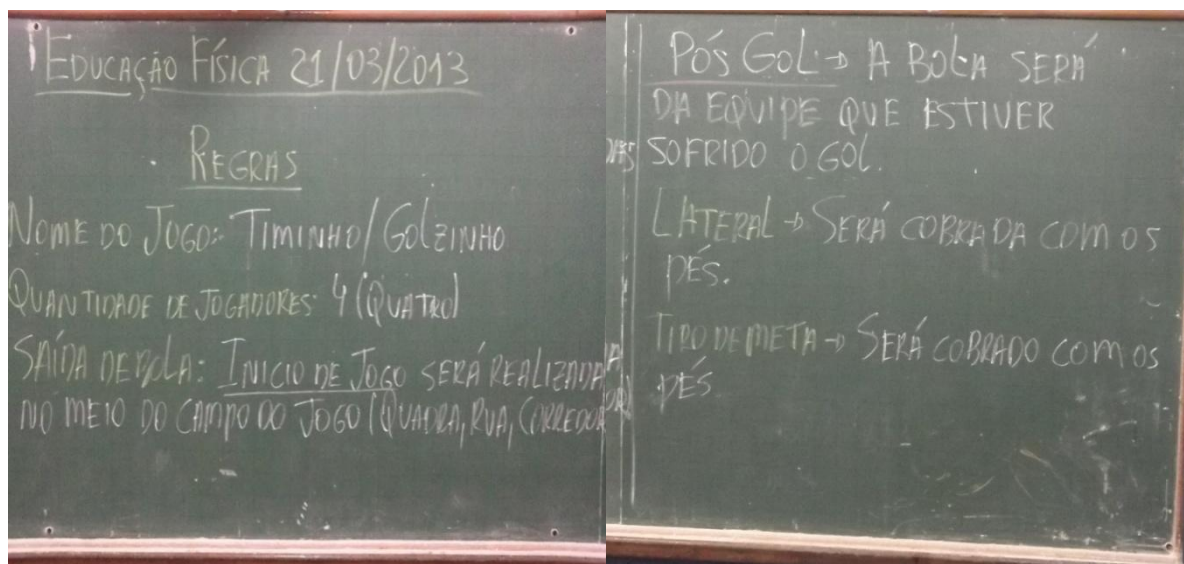 EDUCAÇÃO FÍSICA 21/03/2013
REGRAS
NOME DO JOGO: TIMINHO/GOLZINHO
QUANTIDADE DE JOGADORES: 4 (QUATRO)
SAÍDA DE BOLA: INICIO DE JOGO SERÁ REALIZADA
NO MEIO DO CAMPO DO JOGO (QUADRA, RUA, CORREDOR
PÓS GOL → A BOLA SERÁ
DA EQUIPE QUE ESTIVER
SOFRIDO O GOL.
LATERAL → SERÁ COBRADA COM OS
PÉS.
TIRO DE META → SERÁ COBRADO COM OS
PÉS